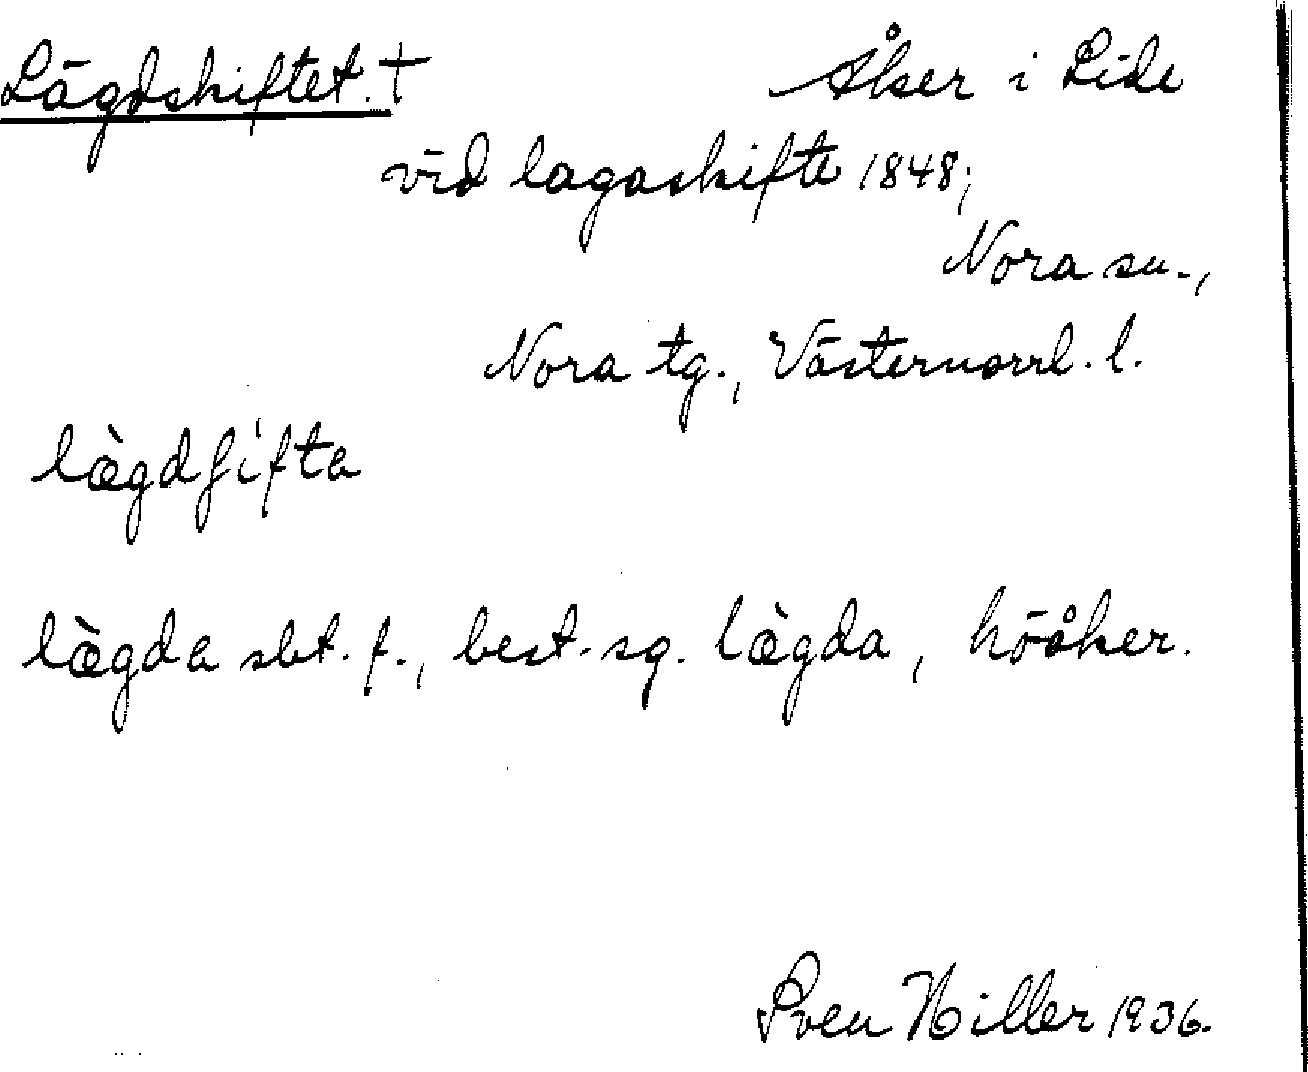 Lägdskiftet. † Åker i Lide
vid lagaskifte 1848;
Nora sn.,
Nora tg., Västernorrl. l.
lὰgdʃifta
lὰgda sbt. f., best. sg. lὰgda, höåker.
Sven Hiller 1936.